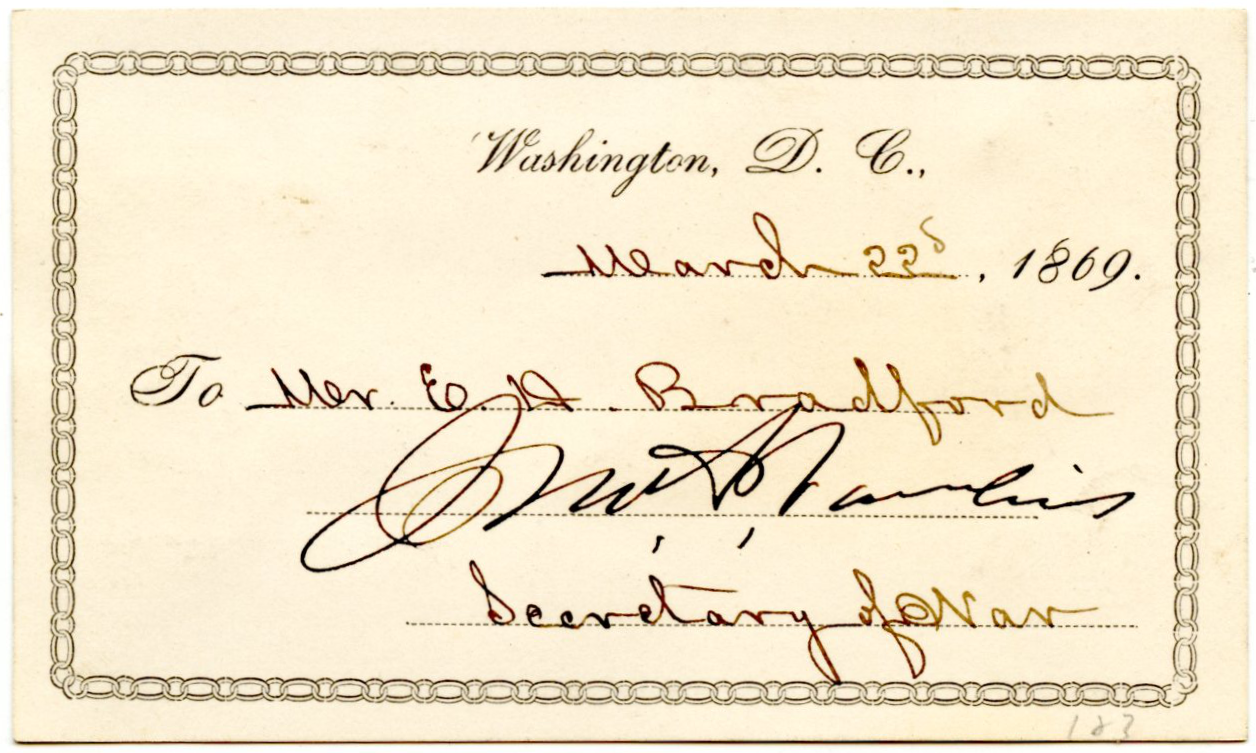 Washington, D. C.,
March 22d, 1869.
To Mr. E. A. Bradford
Jno A Rawlins
Secretary of War
123